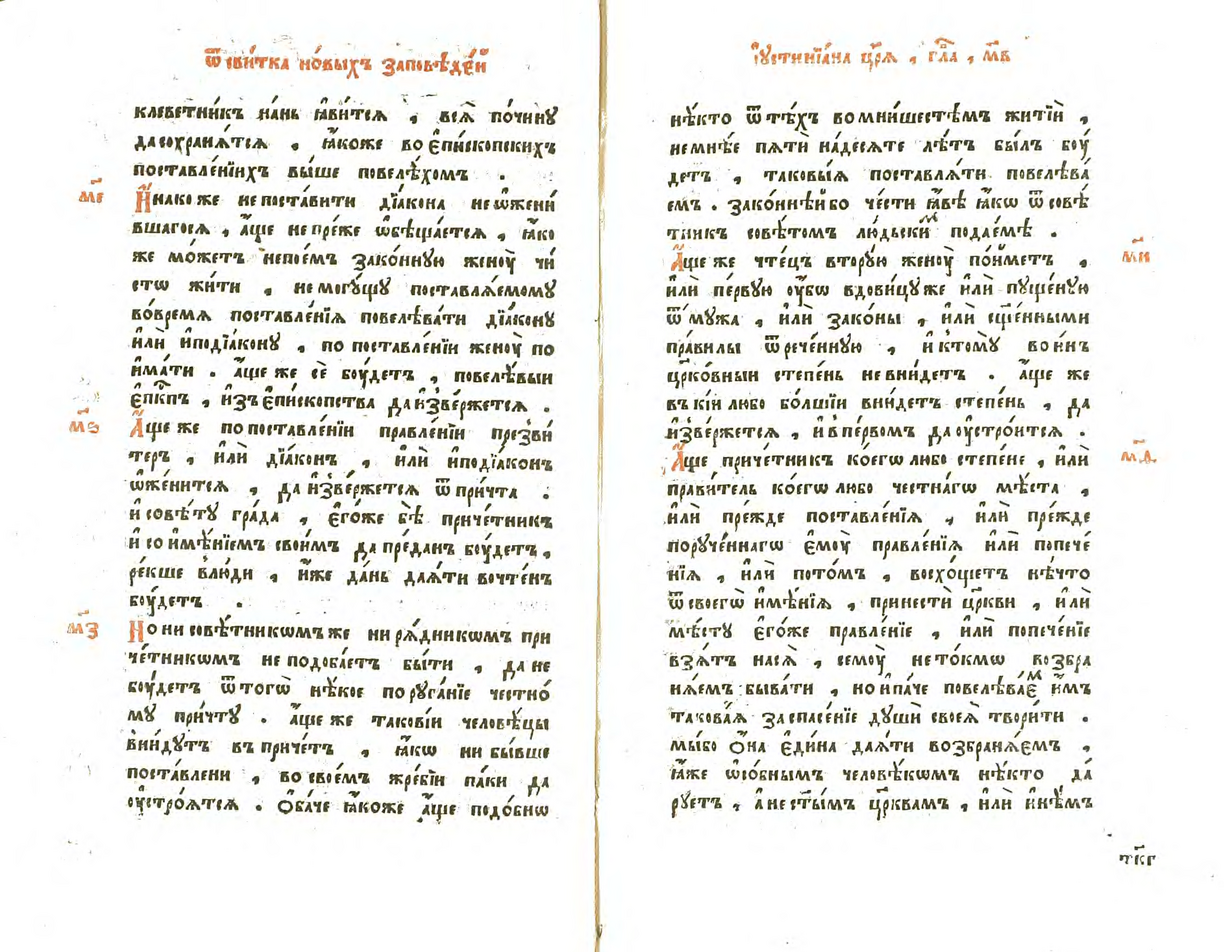 Ѿ свѝтка но́выхъ за́повѣде́й
клеветни́къ на́нь ꙗ҆ви́тсѧ , всѧ̀ по чи́нꙋ
да сохранѧ́тсѧ , ꙗ҆́коже во є҆пи́скопскихъ
поставле́нїихъ вы́ше повелѣ́хомъ .
м҃е
И҆́нако же не поста́вити дїа́кона не ѡ҆жени́
вшагосѧ , а҆́ще не пре́же ѡ҆бѣща́етсѧ , ꙗ҆́ко
же мо́жетъ не пое́мъ зако́ннꙋю женоу̀ чи́
стѡ жи́ти , не могꙋ́щꙋ поставлѧ́емомꙋ
во́времѧ поставле́нїѧ повелѣва́ти дїа́конꙋ
и҆лѝ и҆подїа́конꙋ , по поставле́нїи женоу̀ по
има́ти . а҆́ще же сѐ боу́детъ , повелѣ́выи
є҆пⷭ҇кпъ , и҆зъ є҆пи́скопства да и҆зве́ржетсѧ .
м҃ѕ
А҆́ще же по поставле́нїи правле́нїи презви́
теръ , и҆лѝ дїа́конъ , и҆лѝ и҆подїа́конъ
ѡ҆же́нитсѧ , да и҆зве́ржетсѧ ѿ при́чта .
и҆ совѣ́тꙋ гра́да , є҆го́же бѣ̀ приче́тникъ
и҆ со и҆мѣ́нїемъ свои́мъ да пре́данъ боу́детъ ,
ре́кше в лю́ди , и҆́же да́нь даѧ́ти вочте́нъ
боу́детъ .
м҃з
Но ни совѣ́тникѡмъ же ни рѧ́дникѡмъ при
че́тникѡмъ не подоба́етъ бы́ти , да не
боу́детъ ѿ тогѡ̀ нѣ́кое порꙋга́нїе честно́
мꙋ при́чтꙋ . а҆́ще же такові́и человѣ́цы
вни́дꙋтъ въ приче́тъ , ꙗ҆́кѡ ни бы́вше
поста́влени , во свое́мъ жре́бїи па́ки да
оу҆стро́ѧтсѧ . ѻ҆ба́че ꙗ҆́коже а҆́ще подо́бнѡ
І҆ꙋстинїа́на цр҃ѧ̀ , гл҃а , м҃в
нѣ́кто ѿ тѣ́хъ во мни́шестѣмъ житїѝ ,
не мнѣ́е пѧтѝ на́десѧте лѣ́тъ бы́лъ боу́
детъ , таковы́ѧ поставлѧ́ти повелѣва́
емъ . зако́ннѣй бо че́сти ꙗ҆́вѣ ꙗ҆́кѡ ѿ совѣ́
тникъ совѣ́томъ лю́дьскиⷨ подае́мѣ .
м҃и
А҆́ще же чте́цъ вторꙋ́ю женоу̀ по́йметъ ,
и҆лѝ пе́рвꙋю оу҆́бѡ вдови́цꙋ же и҆лѝ пꙋще́нꙋю
ѿ мꙋ́жа , и҆лѝ зако́ны , и҆лѝ сщ҃е́нными
пра́вилы ѿрече́ннꙋю , и҆ ктомꙋ̀ во и҆́нъ
цр҃ко́вныи степе́нь не вни́детъ . а҆́ще же
въ кі́й любо бо́лшїи вни́детъ степе́нь , да
и҆зве́ржетсѧ , и҆ в пе́рвомъ да оу҆стро́итсѧ .
м҃ѳ
А҆́ще приче́тникъ ко́егѡ любо степе́не , и҆лѝ
прави́тель ко́егѡ любо че́стнагѡ мѣ́ста ,
и҆лѝ пре́жде поставле́нїѧ , и҆лѝ пре́жде
порꙋче́ннагѡ є҆моу̀ правле́нїѧ и҆лѝ попече́
нїѧ , и҆лѝ пото́мъ , восхо́щетъ нѣ́что
ѿ своегѡ̀ и҆мѣ́нїѧ , принестѝ цр҃кви , и҆лѝ
мѣ́стꙋ є҆го́же правле́нїе , и҆лѝ попече́нїе
взѧ́тъ на сѧ̀ , семоу̀ не то́кмѡ возбра
нѧ́емъ быва́ти , но и҆па́че повелѣва́еⷨ и҆̀мъ
такова́ѧ за спасе́нїе дꙋшѝ своеѧ̀ твори́ти .
мы́ бо ѻ҆́на є҆ди́на даѧ́ти возбранѧ́емъ ,
ꙗ҆̀же ѡ҆со́бнымъ человѣ́кѡмъ нѣ́кто да́
рꙋетъ , а҆ не ст҃ы́мъ цр҃квамъ , и҆лѝ и҆нѣ́мъ
тк҃г